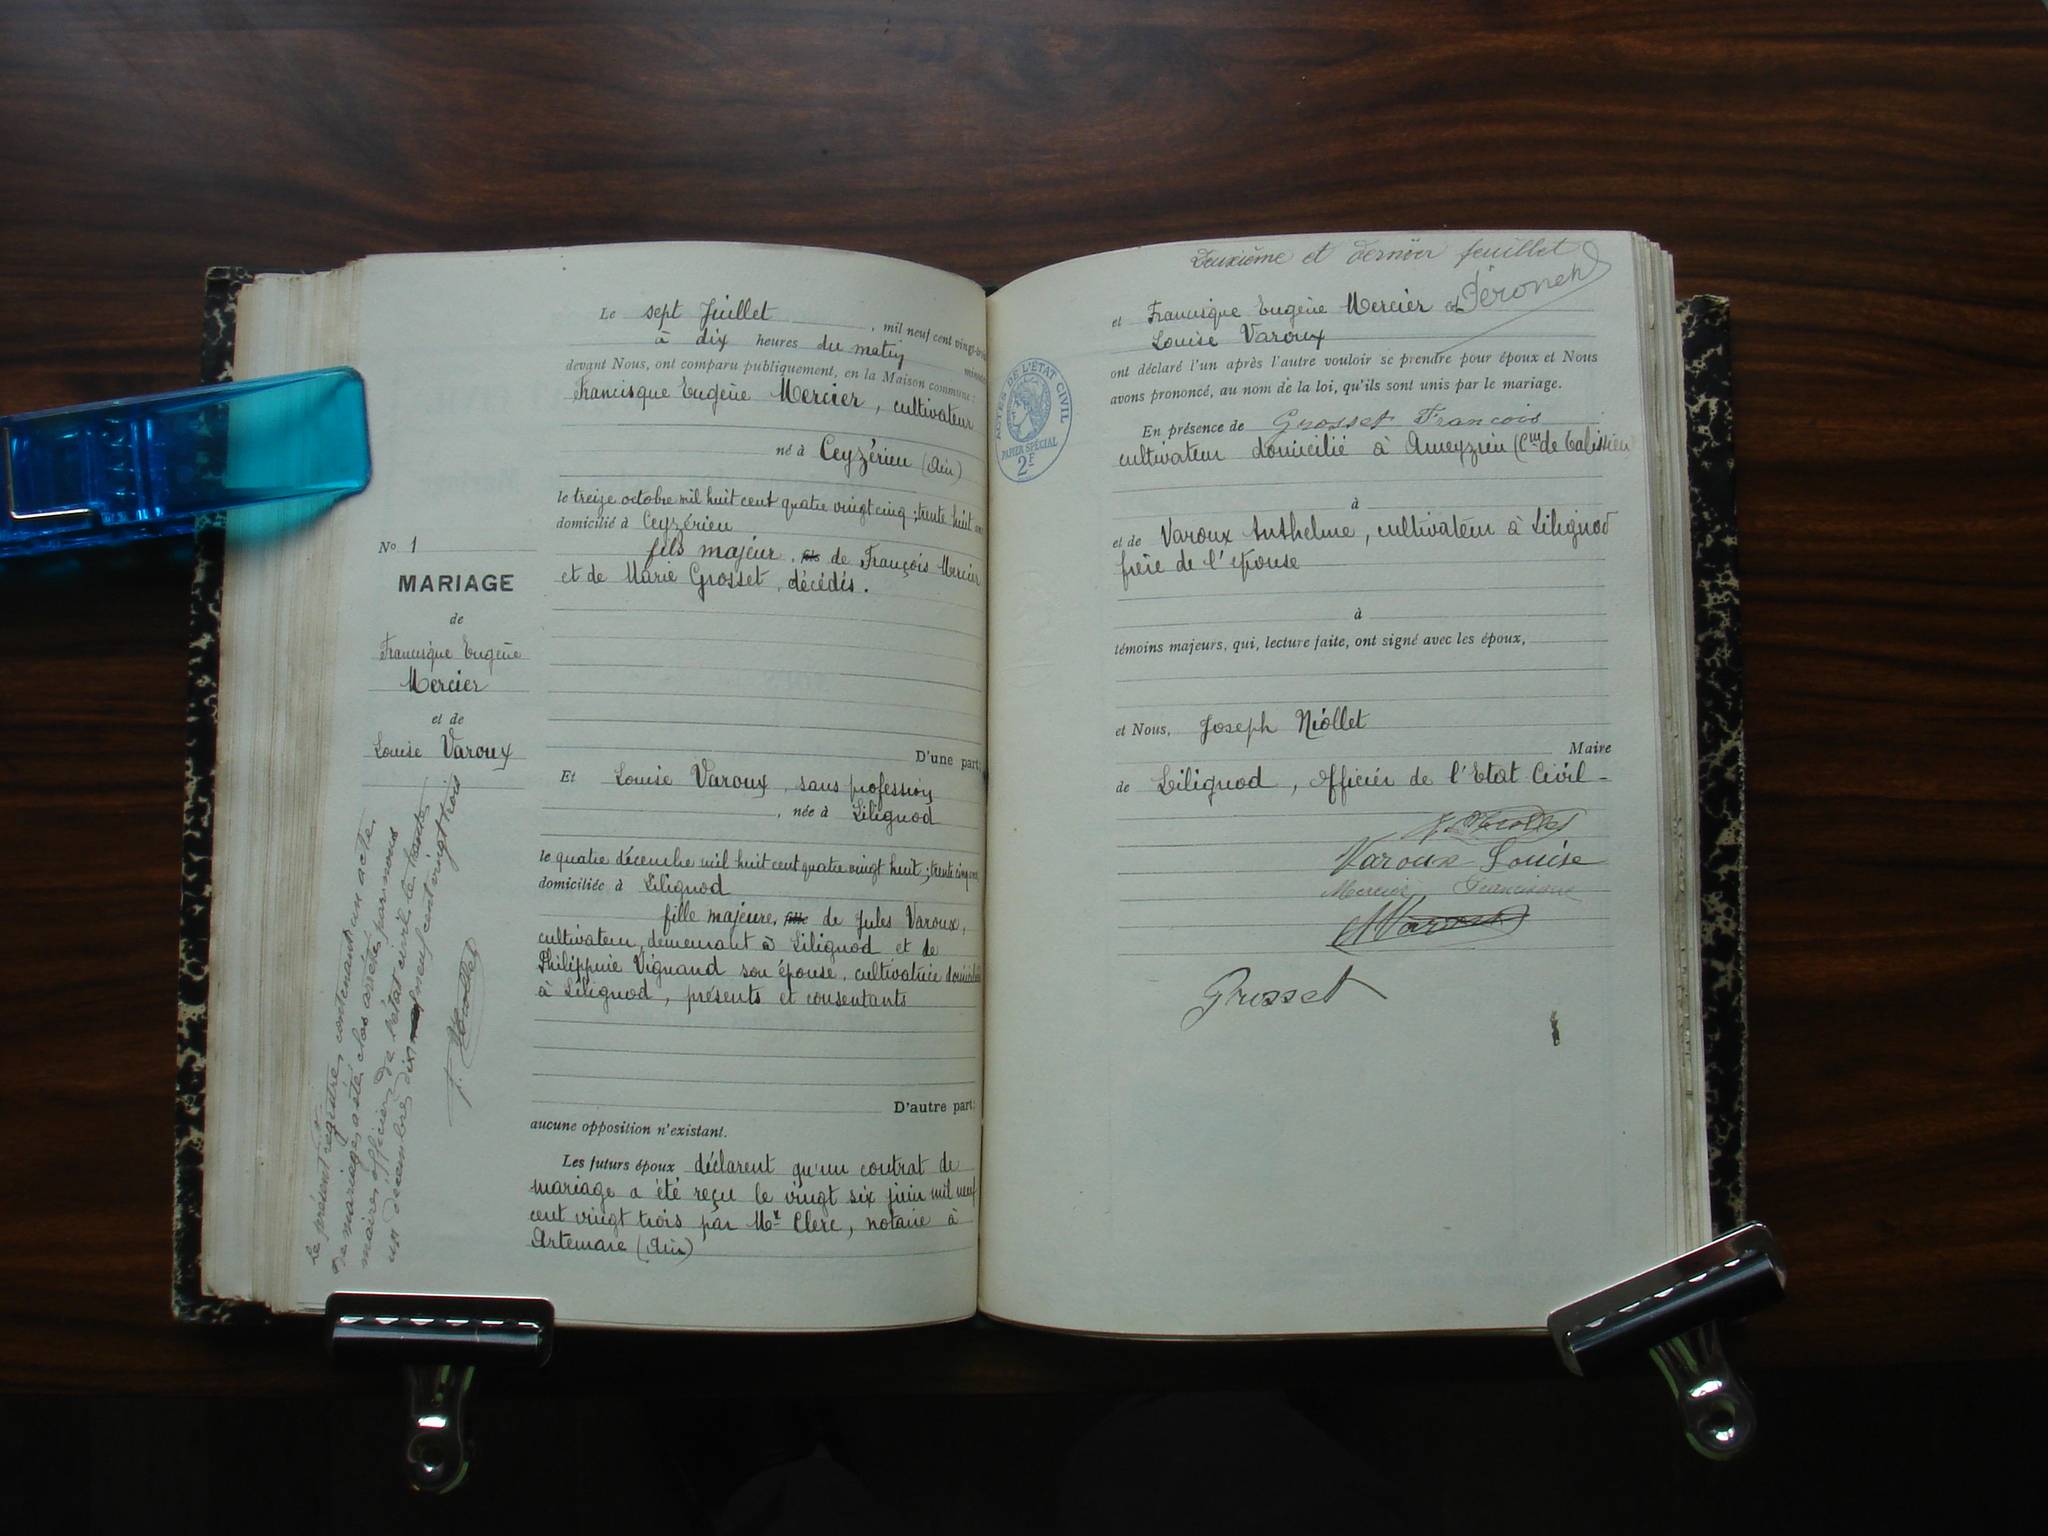 Le sept Juillet , mil neuf cent vingt-trois
à dix heures du matin
devant Nous, ont comparu publiquement, en la Maison commune :
Francisque Eugène Mercier, cultivateur
né à Ceyzérieu (Ain)
le treize octobre mil huit cent quatre vingt cinq ; trente huit ans
domicilié à Ceyzérieu
fils majeur, fils de François Mercier
et de Marie Grosset, décédés.
D'une part;
Et Louise Varoux, sans profession
, née à Lilignod
le quatre décembre mil huit cent quatre vingt huit ; trente cinq ans
domiciliée à Lilignod
fille majeure, fille de Jules Varoux,
cultivateur, demeurant à Lilignod et de
Philippine Vignand son épouse, cultivatrice
à Lilignod, présents et consentants
D'autre part;
aucune opposition n'existant.
Les futurs époux déclarent qu'un contrat de
mariage a été reçu le vingt six juin mil neuf
cent vingt trois par Mr Clerc, notaire à
Artemare (Ain)
No 1
MARIAGE
de
Francisque Eugène
Mercier
et de
Louise Varoux
Le présent registre, contenant un acte
de mariage, a été clos arrêté, par nous
maire, officier de l'état civil, le trente
un décembre dix neuf cent vingt trois
Deuxième et dernier feuillet
et Francisque Eugène Mercier et
Louise Varoux
ont déclaré l'un après l'autre vouloir se prendre pour époux et Nous
avons prononcé, au nom de la loi, qu'ils sont unis par le mariage.
En présence de Grosset François
cultivateur domicilié à Ameyzieu (Cne de Talissieu
à
et de Varoux Anthelme, cultivateur à Lilignod
frère de l'épouse
à
témoins majeurs, qui, lecture faite, ont signé avec les époux,
et Nous, Joseph Niollet
Maire
de Lilignod, Officier de l'Etat Civil -
Varoux Louise
Mercier Francisque
Varoux
Grosset
ACTES DE L'ÉTAT CIVIL
PAPIER SPÉCIAL
2F